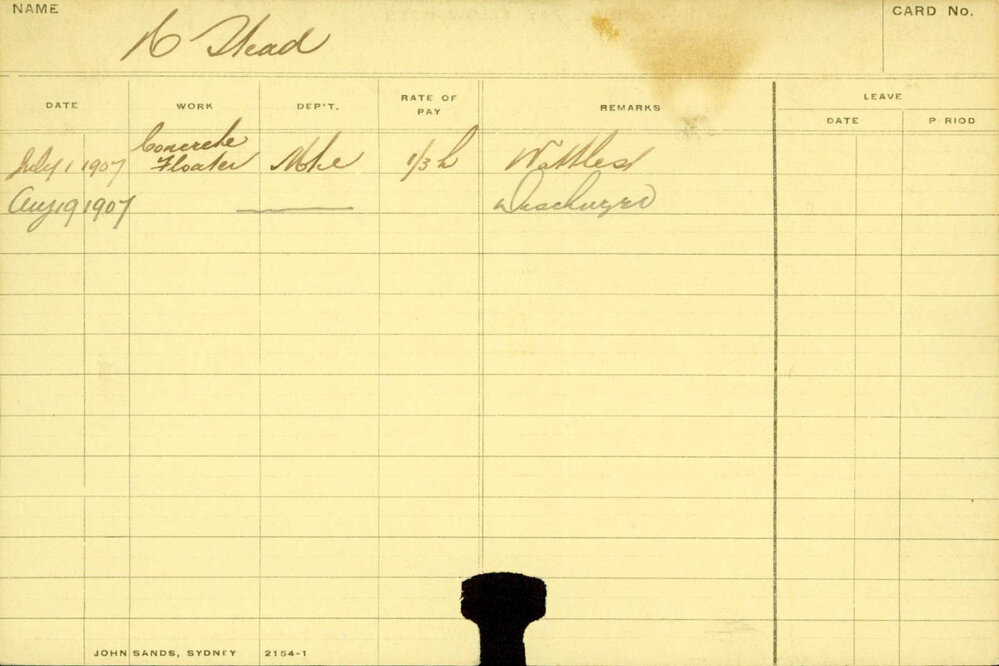 NAME
CARD No.
Stead
DATE WORK DEP'T. RATE OF PAY REMARKS LEAVE
DATE P RIOD
July 1 1907 Concrete Floater 1/3 h
Aug 19 1907 Discharged
JOHN SANDS, SYDNEY 2154-1